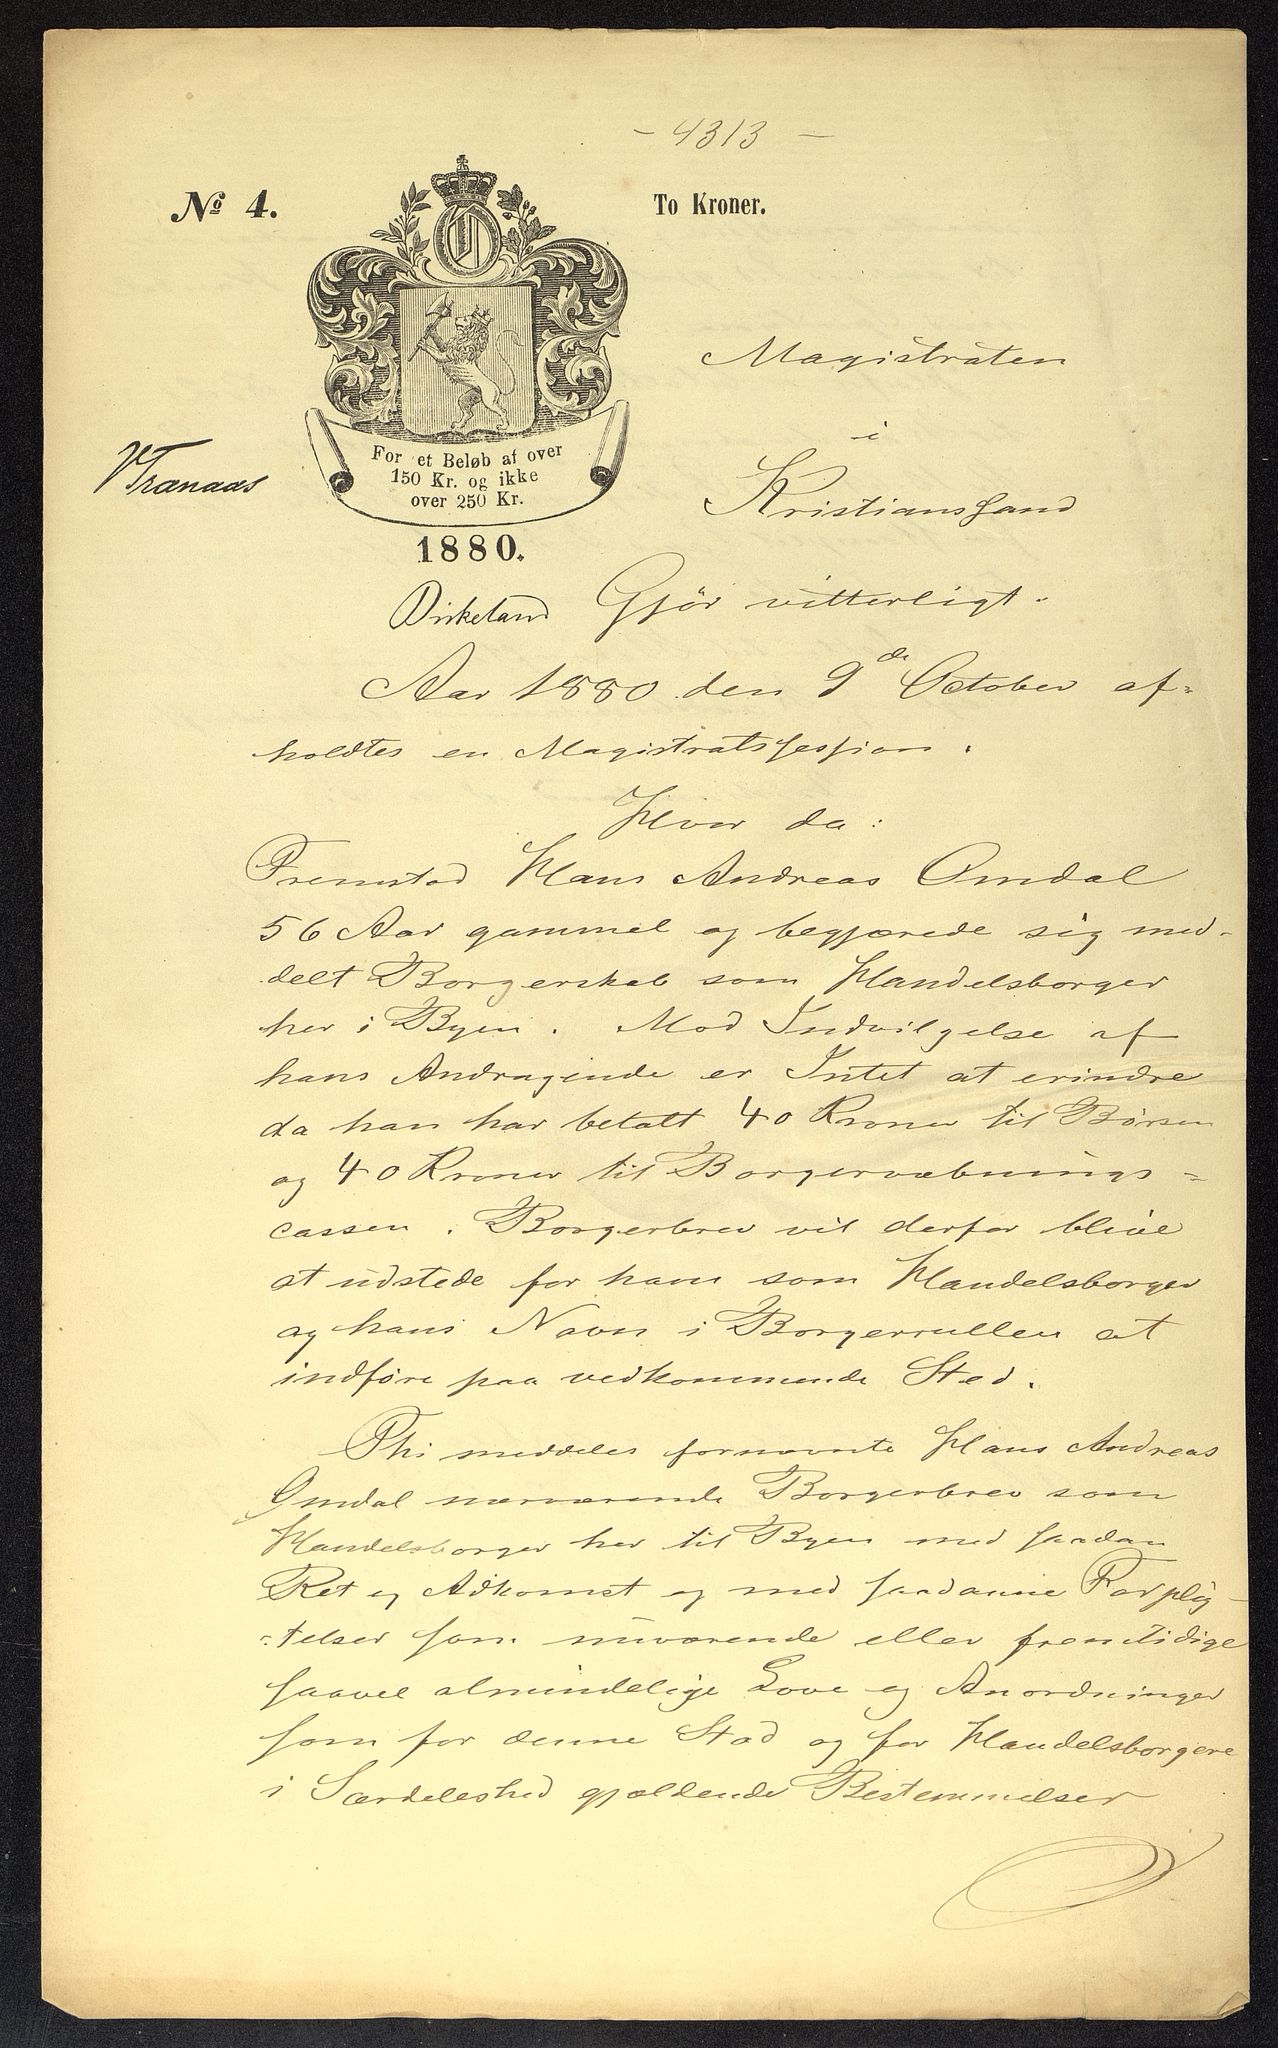 - 4313 -
No 4.
To Kroner.
Magistraten
i
Kristianssand
VTranaas
For et Beløb af over
150 Kr. og ikke
over 250 Kr.
1880.
Birkeland Gjör vitterligt.
Aar 1880 den 9de October af-
holdtes en Magistratssession.
Hvor da:
Fremstod Hans Andreas Omdal
56 Aar gammel og begjærede sig med-
delt Borgerskab som Handelsborger
her i Byen. Mod Indvilgelse af
hans Andragende er Intet at erindre
da han har betalt 40 Kroner til Børsen
og 40 Kroner til Borgervæbnings-
cassen. Borgerbrev vil derfor blive
at udstede for ham som Handelsborger
og hans Navn i Borgerrullen at
indføre paa vedkommende Sted.
Thi meddeles fornævnte Hans Andreas
Omdal nærværende Borgerbrev som
Handelsborger her til Byen med saadan
Ret og Adkomst og med saadanne Forplig-
telser som nuværende eller fremtidige
saavel almindelige Love og Anordninger
som for denne Stad og for Handelsborgere
i Særdeleshed gjældende Bestemmelser